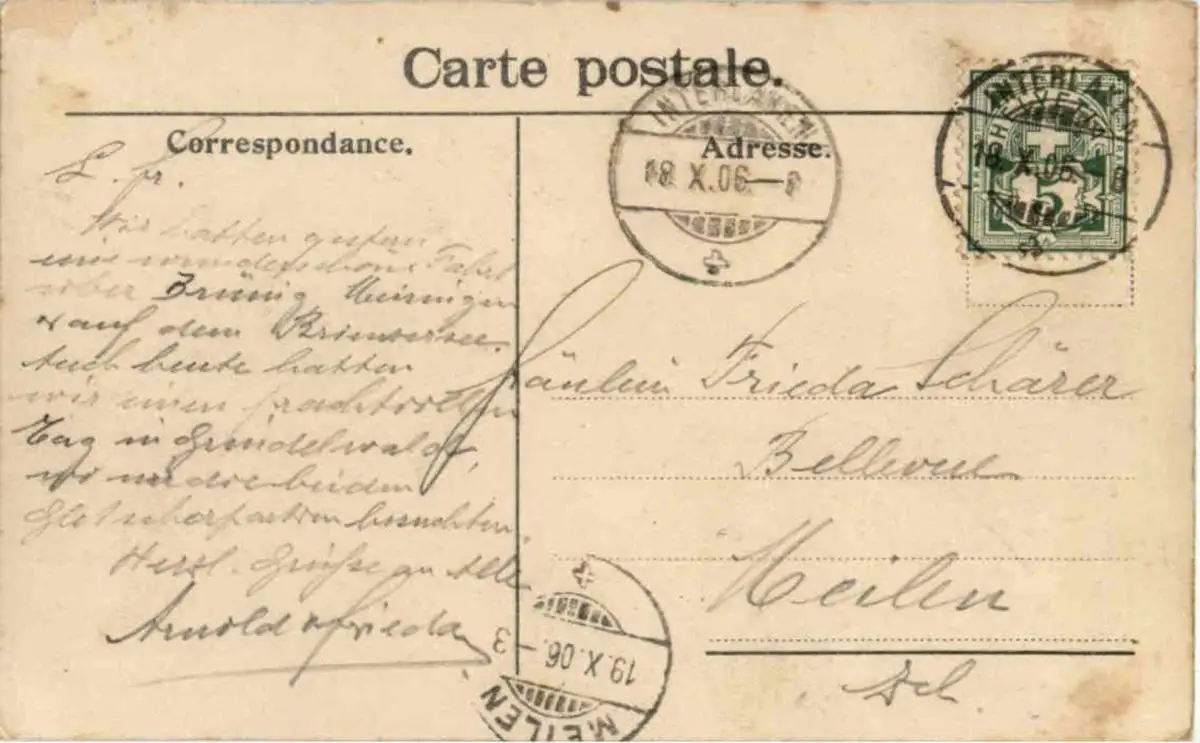 Carte postale.
Correspondance.
Adresse.
INTERLAKEN
18.X.06.—8
INTERLAKEN
18.X.06.
HELVETIA
5
L. Fr.
Wir hatten gestern
eine wunderschöne Fahrt
über Brünig Meiringen
& auf dem Brienzersee.
Auch heute hatten
wir einen prachtvollen
Tag in Grindelwald,
wo wir die beiden
Gletscherpartien besuchten.
Herzl. Grüsse an Alle
Arnold & Frieda
Fräulein Frieda Schärer
Bellevue
Meilen
MEILEN
19.X.06.—3